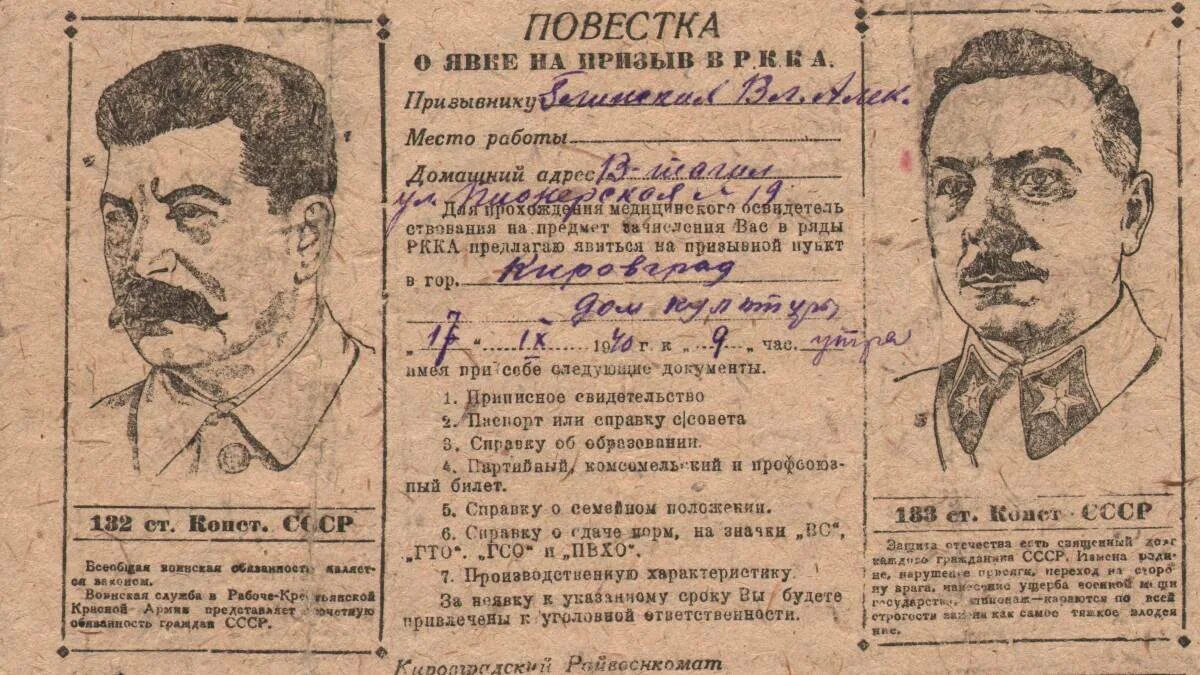 ПОВЕСТКА
О ЯВКЕ НА ПРИЗЫВ В Р.К.К А.
Призывнику Вл. Алек.
Место работы
Домашний адрес В-тагил
ул. Пионерская 19
Для прохождения медицинского освидетель
ствования на предмет зачисления Вас в ряды
РККА предлагаю явиться на призывной пункт
в гор. Кировград
дом культуры
„17“ IX 1940 г. к „9„ час. утра
имея при себе следующие документы.
1. Приписное свидетельство
2. Паспорт или справку с|совета
3. Справку об образовании.
4. Партийный, комсомельский и профсоюз-
ный билет.
5. Справку о семейном положении.
6. Справку о сдаче норм, на значки „ВС“,
„ГТО“. „ГСО“ и „ПВХО“.
7. Производственную характеристику.
За неявку к указанному сроку Вы будете
привлечены к уголовной ответственности.
Кировградский Райвоенкомат
132 ст. Конст. СССР
Всеобщая воинская обязанность являет-
ся законом.
Воинская служба в Рабоче-Крестьянской
Красной Армии представляет почетную
обязанность граждан СССР.
133 ст. Конст СССР
Защита отечества есть священный долг
каждого гражданина СССР. Измена роди-
не, нарушение присяги, переход на сторо-
ну врага, нанесение ущерба военной мощи
государства, шпионаж—караются по всей
строгости закона как самое тяжкое злодея
ние.